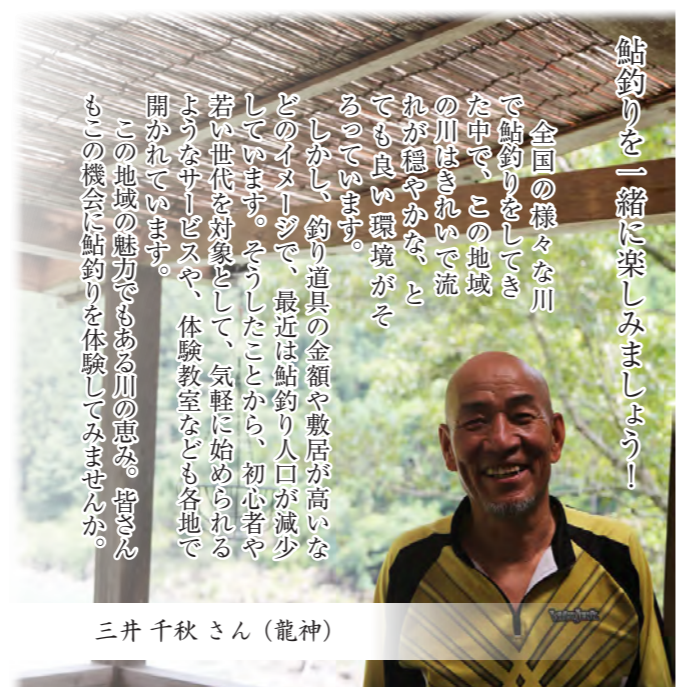 鮎釣りを一緒に楽しみましょう！
全国の様々な川
で鮎釣りをしてき
た中で、この地域
の川はきれいで流
れが穏やかな、と
ても良い環境がそ
ろっています。
しかし、釣り道具の金額や敷居が高いな
どのイメージで、最近は鮎釣り人口が減少
しています。そうしたことから、初心者や
若い世代を対象として、気軽に始められる
ようなサービスや、体験教室なども各地で
開かれています。
この地域の魅力でもある川の恵み。皆さん
もこの機会に鮎釣りを体験してみませんか。
三井 千秋 さん（龍神）